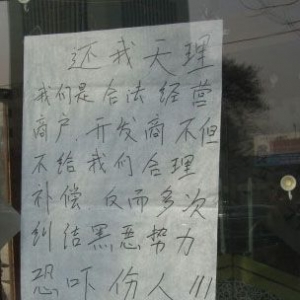 还我天理
我们是合法经营
商户，开发商不但
不给我们合理
补偿 反而多次
纠结黑恶势力
恐吓份人!!!